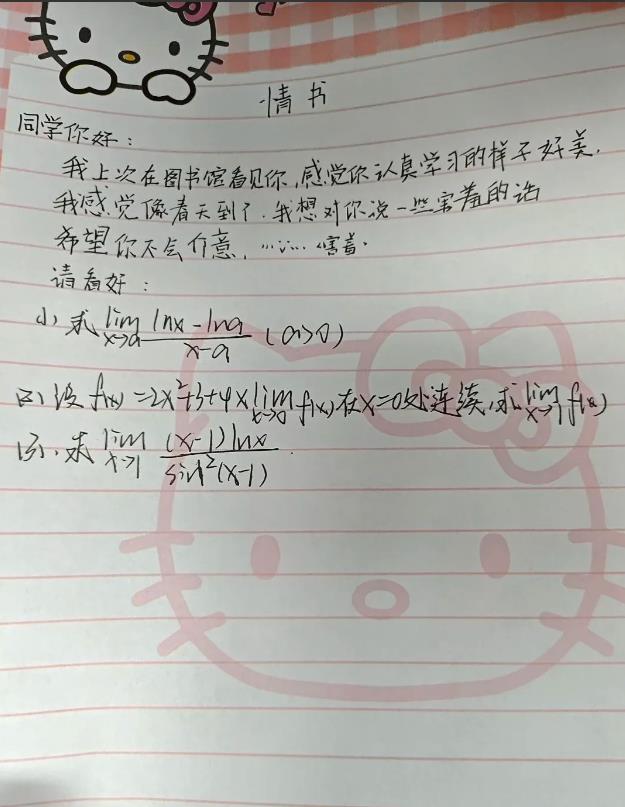 情书
同学你好:
我上次在图书馆看见你,感觉你认真学习的样子好美,
我感觉像春天到了.我想对你说一些害羞的话
希望你不会介意,……害羞.
请看好:
(1) 求 lim x→a (lnx-lna)/(x-a) (a>0)
(2) 设 f(x)=2x²+3+4x lim x→0 f(x)在x=0处连续,求 lim x→1 f(x)
(3).求 lim x→1 (x-1)lnx/sin²(x-1).